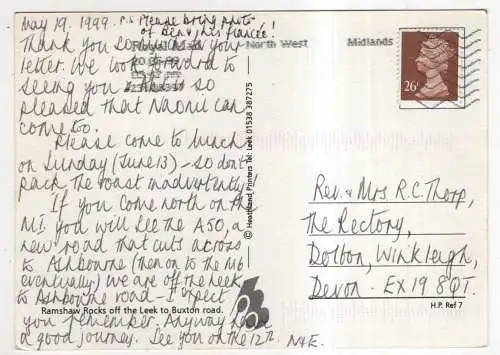 May 19, 1999. P.S. Please bring photo
of Ben & his fiancée!
Thank you so much for your
letter. We look forward to
seeing you & so
pleased that Naomi can
come too.
Please come to lunch
on Sunday (June 13) - so don't
pack the roast inadvertently!
If you come north on the
M1 you will see the A50, a
new road that cuts across
to Ashbourne (then on to the M6
eventually) we are off the Leek
to Ashbourne road - I expect
you remember. Anyway have
a good journey. See you on the 12th. N & E.
Ramshaw Rocks off the Leek to Buxton road.
© Heathland Printers Tel: Leek 01538 387275
Royal Mail North West Midlands
26P
Rev. & Mrs R.C. Thorp,
The Rectory,
Dolton, Winkleigh,
Devon - EX19 8QT.
H.P. Ref 7